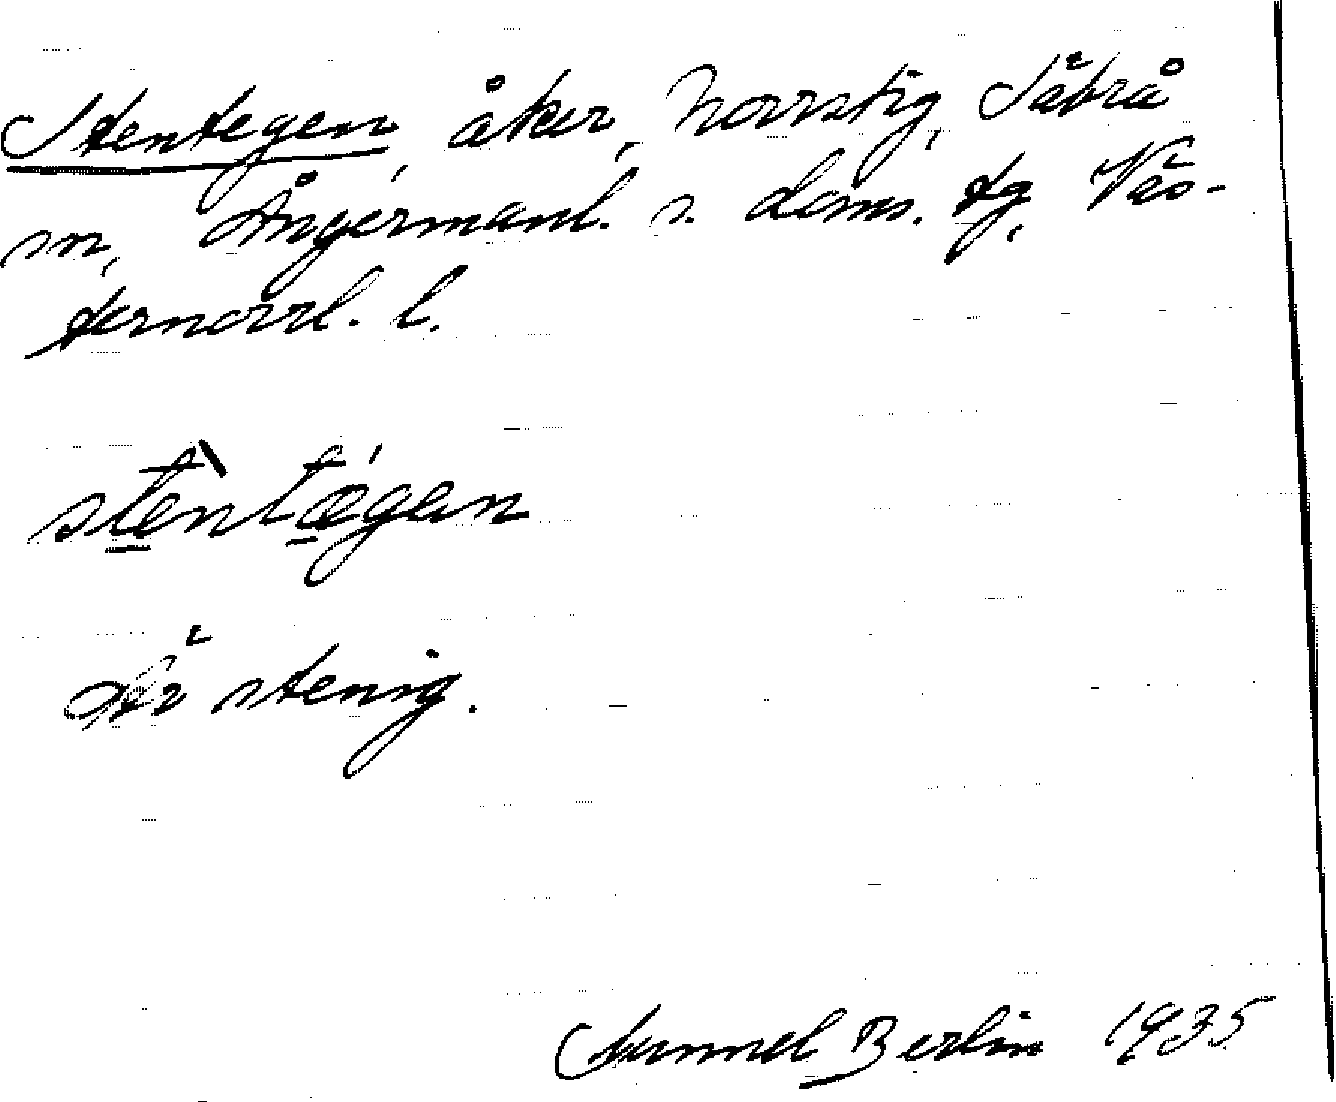 Stentegen, åker, Norrstig, Säbrå
sn, Ångermanl. s. doms. tg, Väs-
ternorrl. l.
stèntǽgan
Är stenig.
Gunnel Berlin 1935